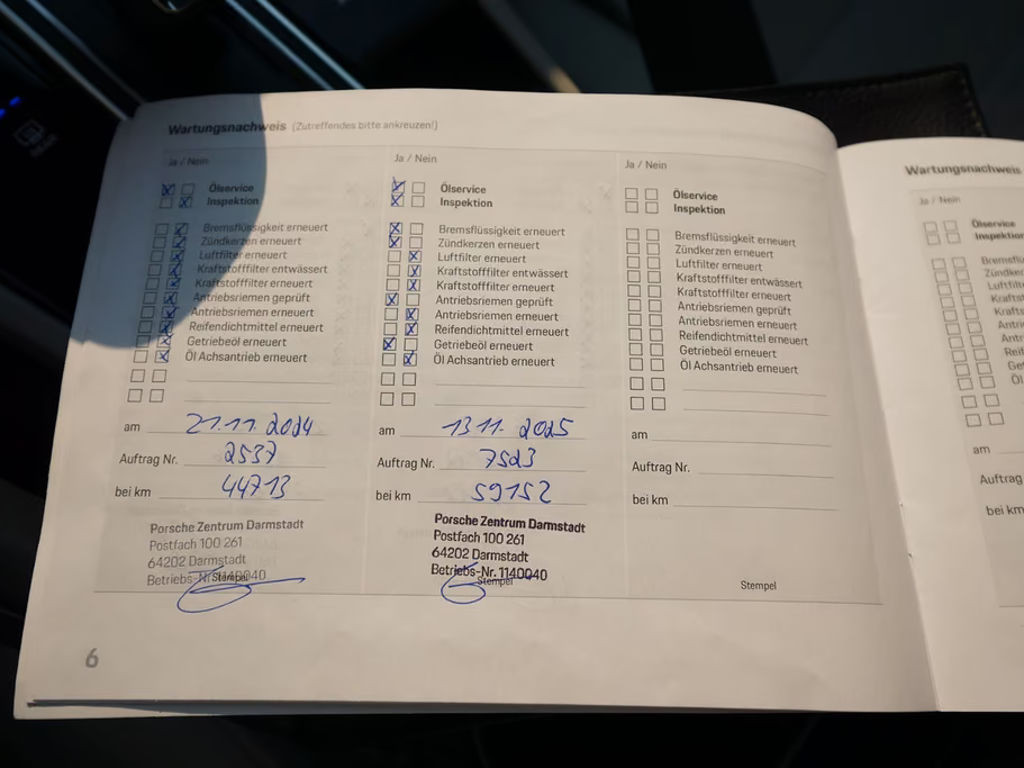 Wartungsnachweis (Zutreffendes bitte ankreuzen!)
Ja / Nein
Ölservice
Inspektion
Bremsflüssigkeit erneuert
Zündkerzen erneuert
Luftfilter erneuert
Kraftstofffilter entwässert
Kraftstofffilter erneuert
Antriebsriemen geprüft
Antriebsriemen erneuert
Reifendichtmittel erneuert
Getriebeöl erneuert
Öl Achsantrieb erneuert
am 21.11.2024
Auftrag Nr. 2537
bei km 44713
Porsche Zentrum Darmstadt
Postfach 100 261
64202 Darmstadt
Betriebs-Nr. 1140040
Stempel
Ja / Nein
Ölservice
Inspektion
Bremsflüssigkeit erneuert
Zündkerzen erneuert
Luftfilter erneuert
Kraftstofffilter entwässert
Kraftstofffilter erneuert
Antriebsriemen geprüft
Antriebsriemen erneuert
Reifendichtmittel erneuert
Getriebeöl erneuert
Öl Achsantrieb erneuert
am 13 11. 2025
Auftrag Nr. 7523
bei km 59152
Porsche Zentrum Darmstadt
Postfach 100 261
64202 Darmstadt
Betriebs-Nr. 1140040
Stempel
Ja / Nein
Ölservice
Inspektion
Bremsflüssigkeit erneuert
Zündkerzen erneuert
Luftfilter erneuert
Kraftstofffilter entwässert
Kraftstofffilter erneuert
Antriebsriemen geprüft
Antriebsriemen erneuert
Reifendichtmittel erneuert
Getriebeöl erneuert
Öl Achsantrieb erneuert
am
Auftrag Nr.
bei km
Stempel
6
Wartungsnachweis
Ja / Nein
Ölservice
Inspektion
Bremsflü
Zündke
Luftfilt
Kraftst
Krafts
Antri
Antr
Reif
Get
Öl
am
Auftrag
bei km